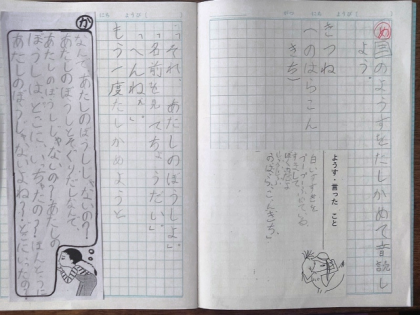 め 三のようすをたしかめて音読し
よう。
きつね
(のはらこん
きち)
ようす・言った こと
白いすすきを
「それ、あたしのぼうしよ。」
「名前を見てちょうだい。」
「へんねぇ。」
もう一度たしかめようと
か
なんで、あたしのぼうしじゃないの?
あたしのぼうしとそっくりだしなんで、
あたしのぼうしじゃないの?あたしの
ぼうしはどこに、いっちゃたの?ほんとうに
あたしのぼうしじゃないよね?どこにいたの?